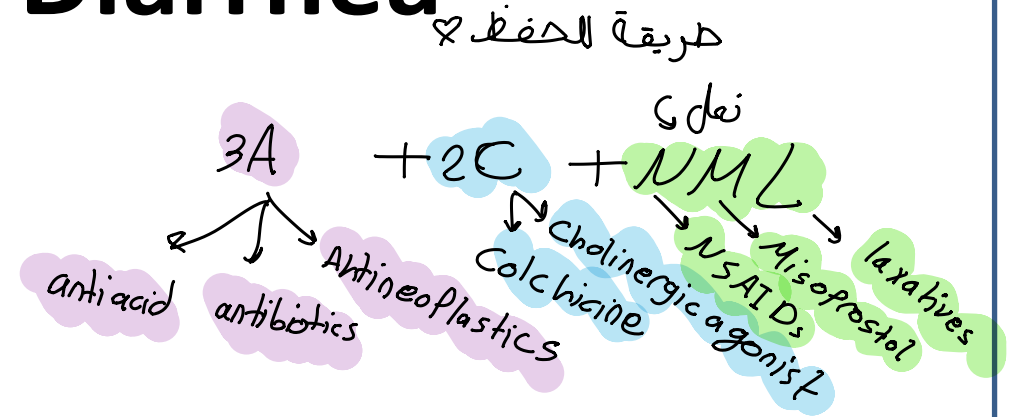 Diarrhea
طريقة الحفظ ♡
نمل
3A + 2C + NML
antiacid
antibiotics
Antineoplastics
Colchicine
Cholinergic agonist
NSAIDs
Misoprostol
laxatives